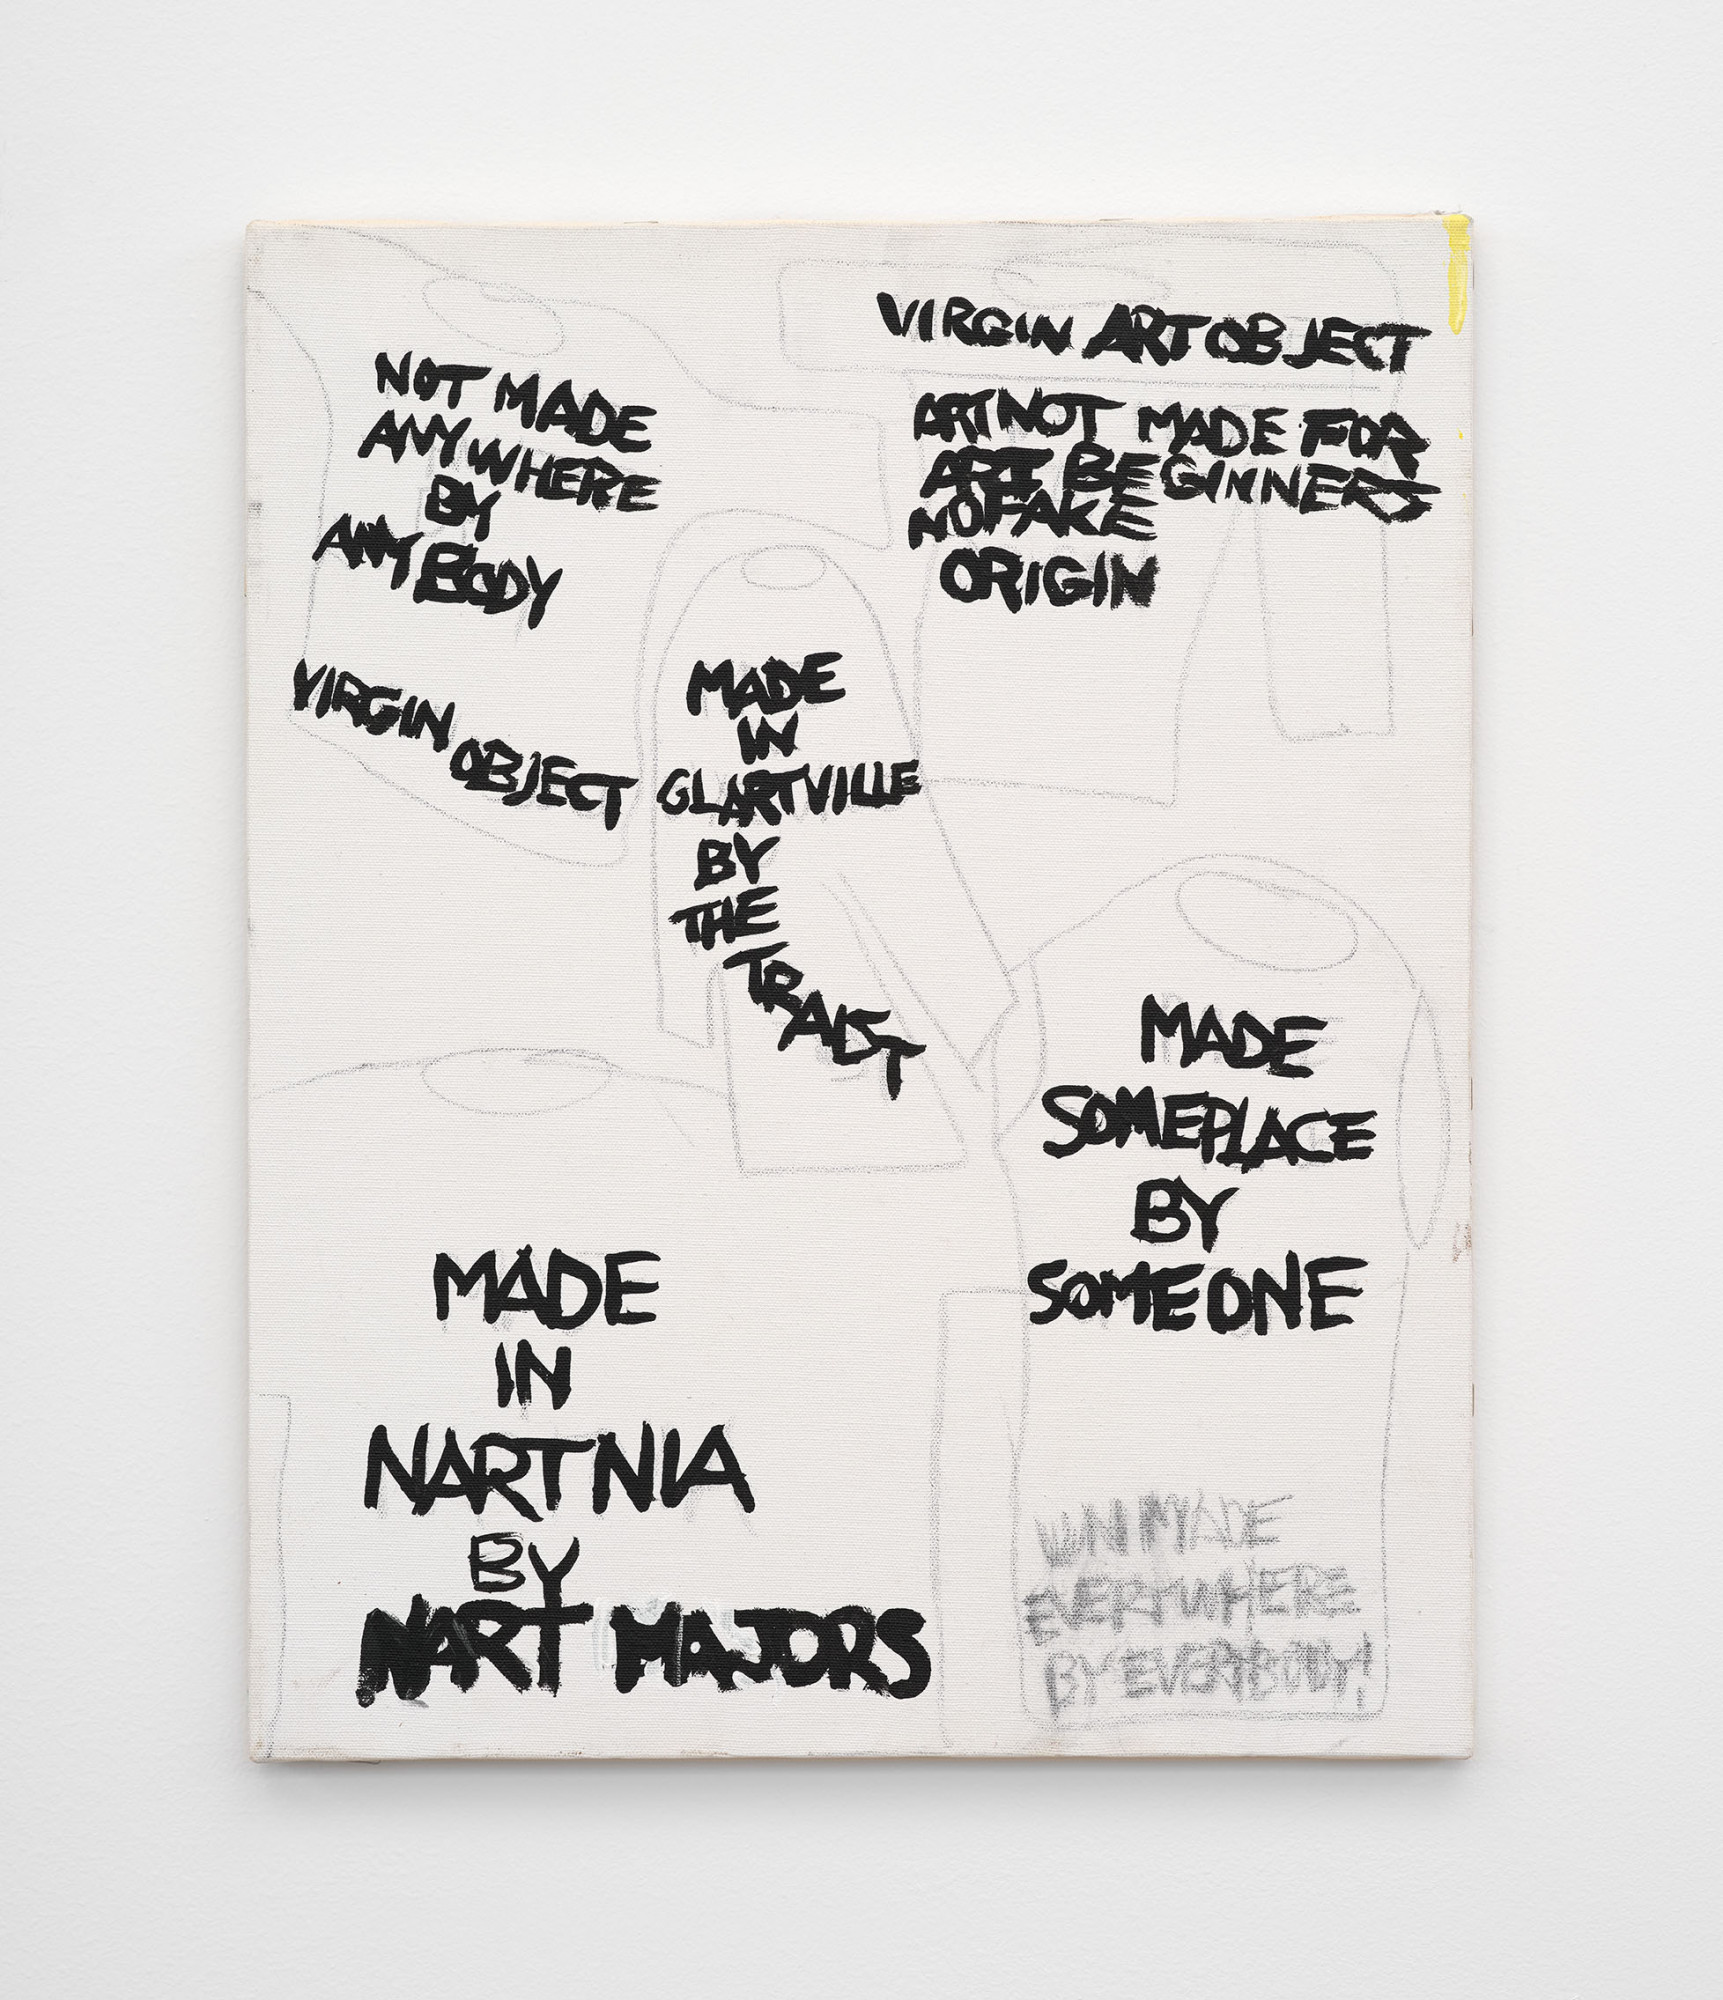 NOT MADE
ANYWHERE
BY
ANYBODY
VIRGIN OBJECT
VIRGIN ART OBJECT
ART NOT MADE FOR
ART BEGINNERS
NO FAKE
ORIGIN
MADE
IN
GLARTVILLE
BY
THE
TRAIST
MADE
SOMEPLACE
BY
SOMEONE
MADE
IN
NARTNIA
BY
NART MAJORS
UNIMADE
EVERYWHERE
BY EVERYBODY!